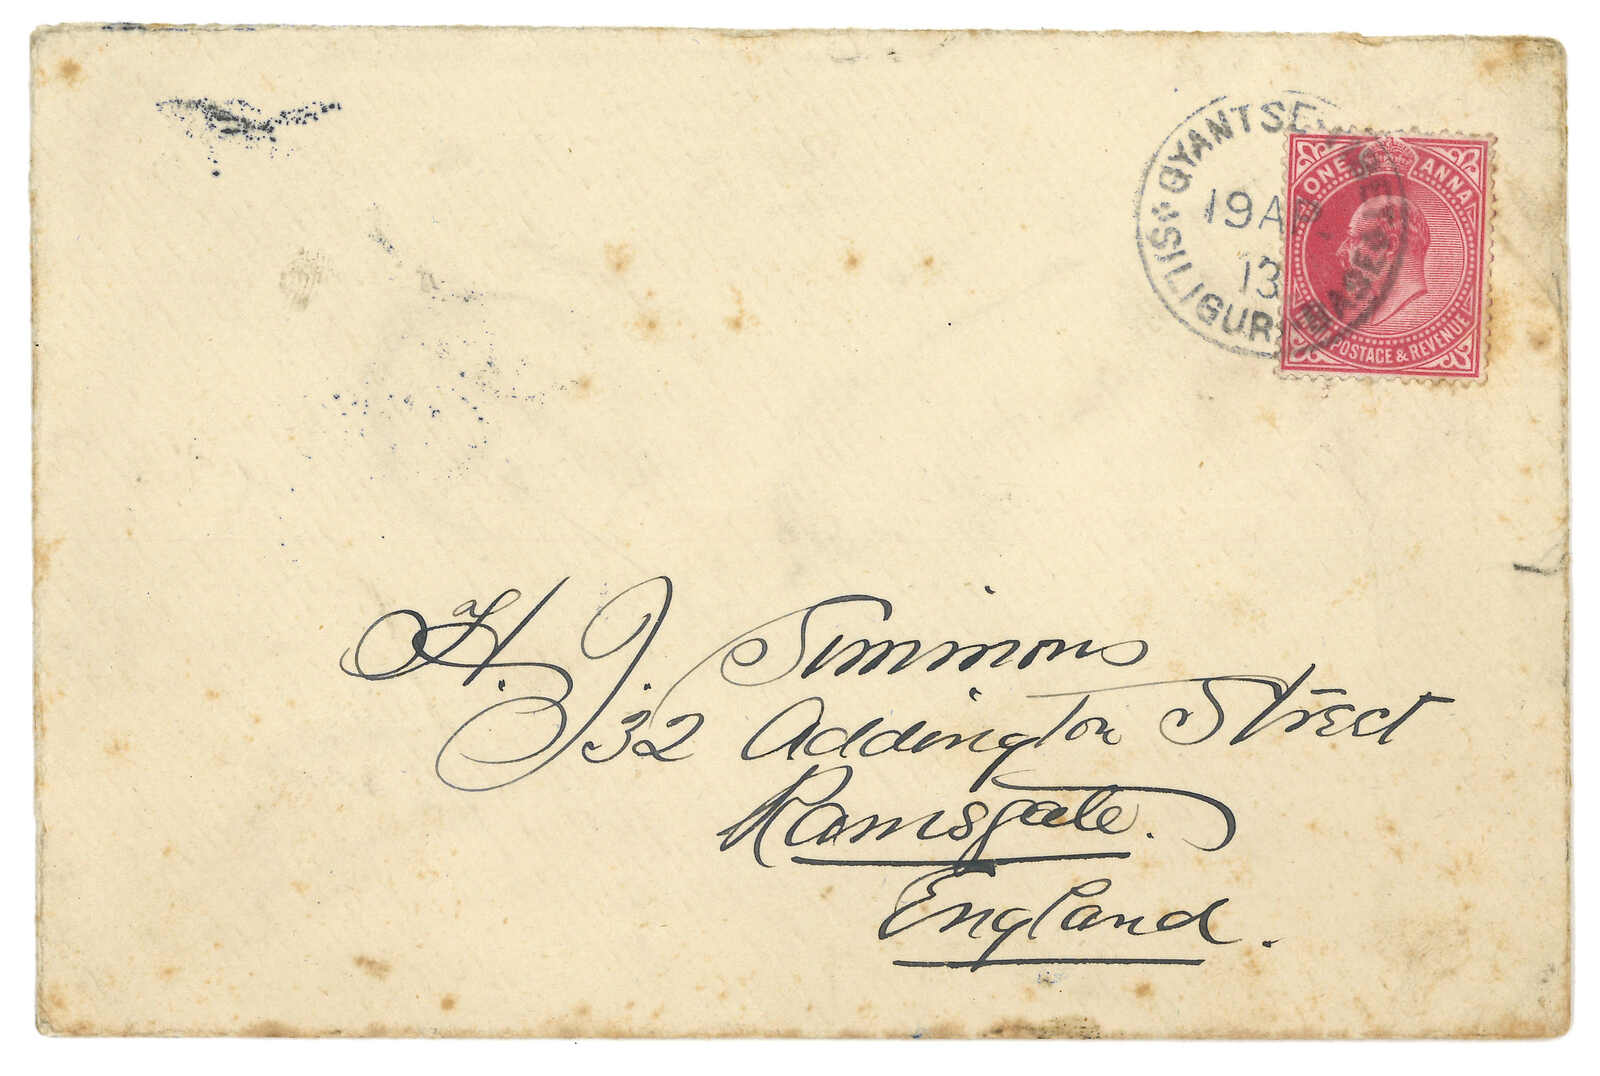 GYANTSE
19 AP
13
SILIGURI BASE
ONE ANNA
POSTAGE & REVENUE
H. J. Simmons
32 Addington Street
Ramsgate.
England.